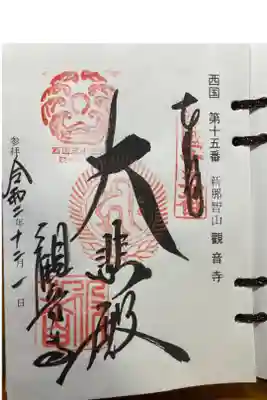 西国 第十五番 新那智山 觀音寺
奉拝
大悲殿
観音寺
参拝 令和二年十二月一日